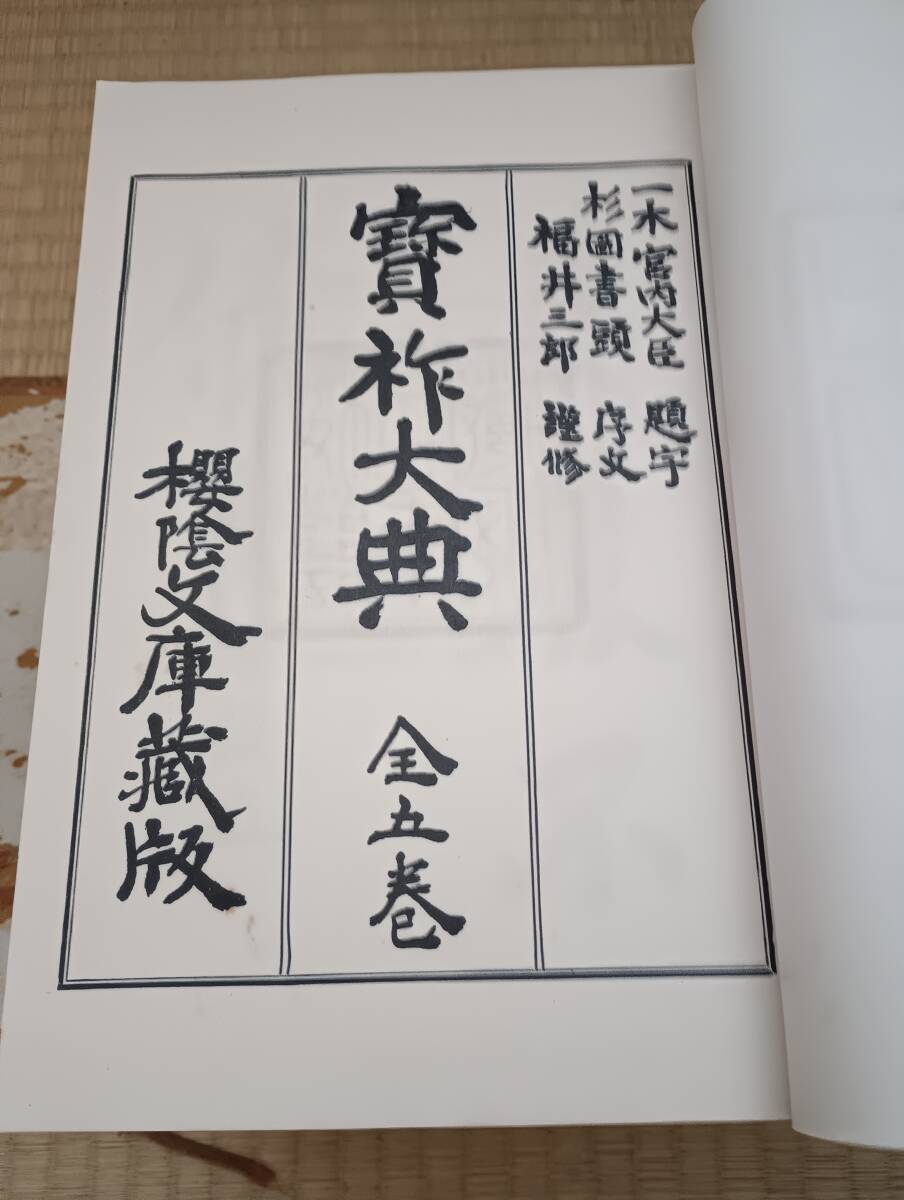 一木宮内大臣 題字
杉圖書頭 序文
福井三郎 謹修
寶祚大典 全五巻
櫻陰文庫藏版